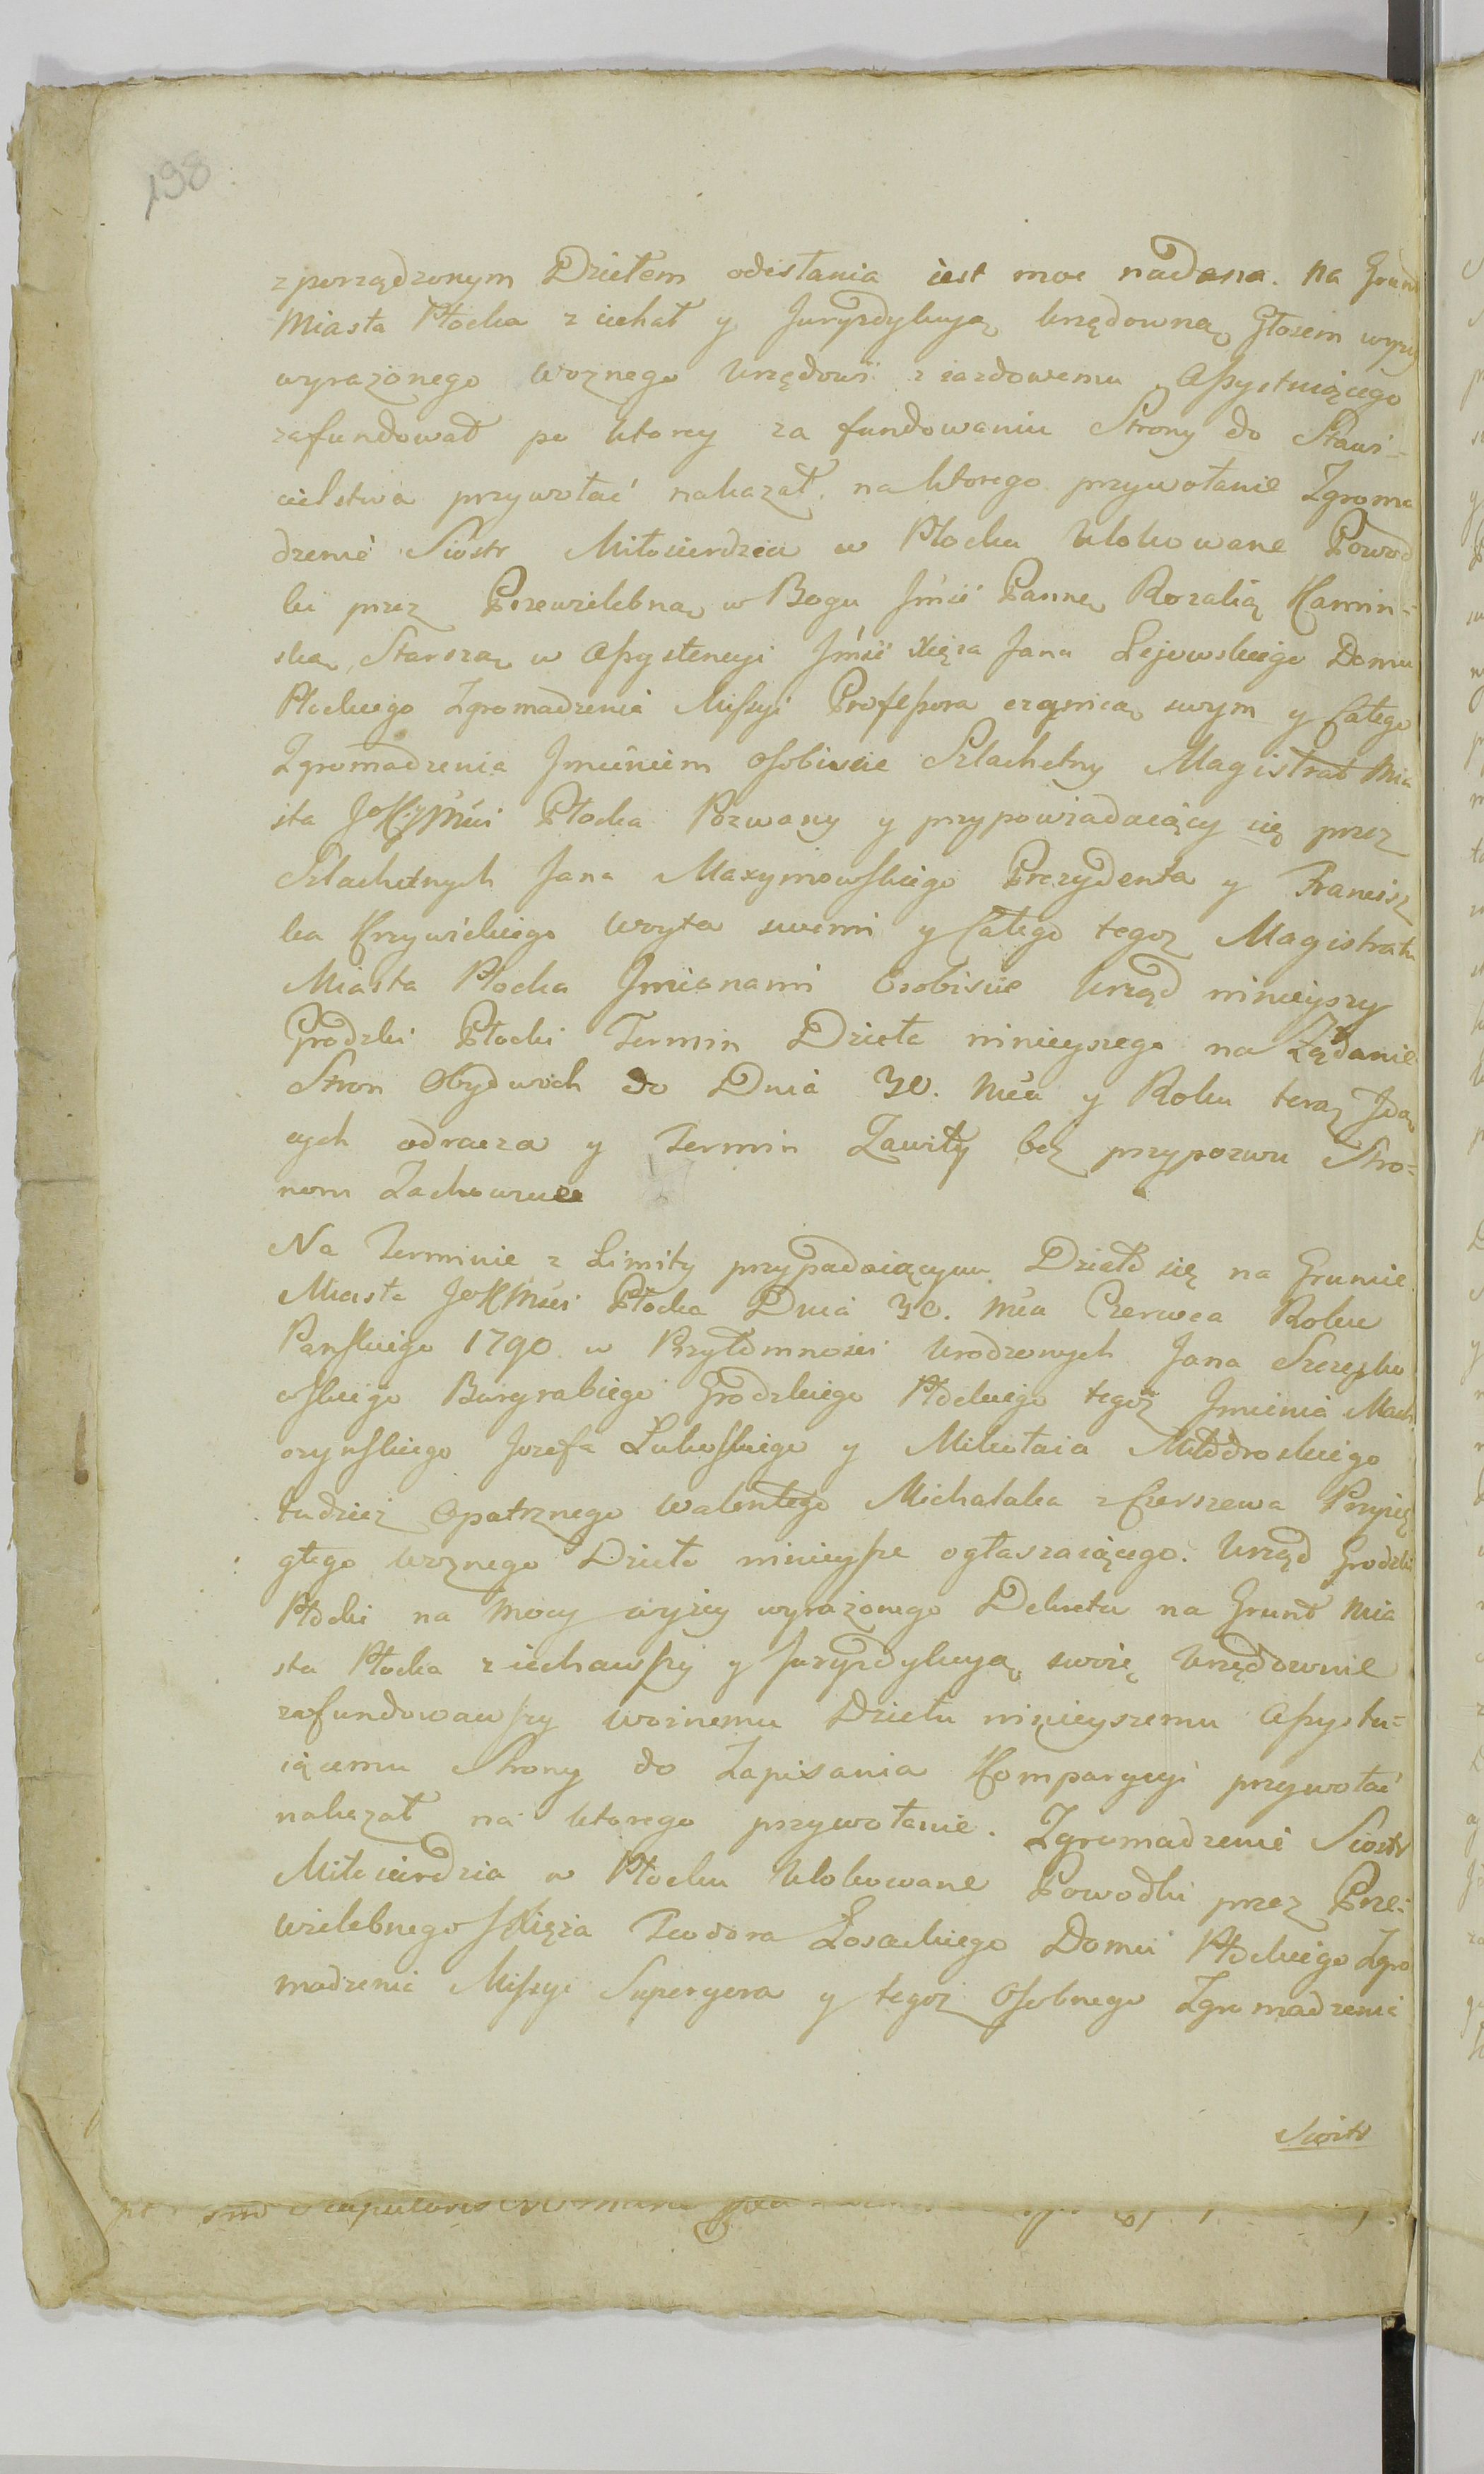 198.
z porządzonym Dziełem odesłania iest moc nadana. Na Grunt
Miasta Płocka ziechał y Juryzdykcyą Urzędowną Głosem wyzy
wyrażonego Woznego Urzędowi ziazdowemu assystuiącego
zafundował po ktorey za fundowaniu Strony do Stawi-
cielstwa przywołać nakazał. na ktorego przywołanie Zgroma
dzenie Siostr Miłosierdzia w Płocku Ulokowane Powod
ki przez Przewielebną w Bogu Jmć Pannę Rozalią Kamin=
ską Starszą w assystencyi Jmć Xięza Jana Lejowskiego Domu
Płockiego Zgromadzenia Missyi Professora czynicą swym y Całego
Zgromadzenia Jmieniem Osobiscie Szlachetny Magistrat Mia
sta JKMci Płocka Pozwany y przypowiadaiący się przez
Szlachetnych Jana Maxymowskiego Prezydenta y Francisz
ka Krzywickiego Woyta swemi y Całego tegoz Magistratu
Miasta Płocka Jmionami Osobiscie Urząd ninieyszy
Grodzki Płocki Termin Dzieła ninieyszego na Ządanie
Stron Obydwoch do Dnia 30. Mca y Roku teraz Jdą
cych odracza y Termin Zawity bez przypozwu Stro=
nom Zachowuie
Na Terminie z Limity przypadaiącym Działo się na Gruncie
Miasta JKMci Płocka Dnia 30. Mca Czerwca Roku
Panskiego 1790. w Przytomnosci Urodzonych Jana Szczepko
wskiego Burgrabiego Grodzkiego Płockiego tegoz Jmienia Mach
czynskiego Jozefa Lukoskiego y Mikołaia Młodroskiego
tudziez Opatrznego Walentego Michalaka z Cierszewa Przysię
głego Woznego Dzieło ninieysze ogłaszaiącego. Urząd Grodzki
Płocki na Mocy wyzey wyrazonego Dekretu na Grunt Mia
sta Płocka ziechawszy y Juryzdykcyą swoię Urzędownie
zafundowawszy Woznemu Dziełu ninieyszemu assystu=
iącemu Strony do Zapisania Komparycyi przywołać
nakazał na ktorego przywołanie. Zgromadzenie Siostr
Miłosierdzia w Płocku Ulokowane Powodki przez Prze=
wielebnego Xięza Teodora Łosackiego Domu Płockiego Zgro
madzenia Missyi Superyora y tegoz Osobnego Zgromadzenia
Siostr